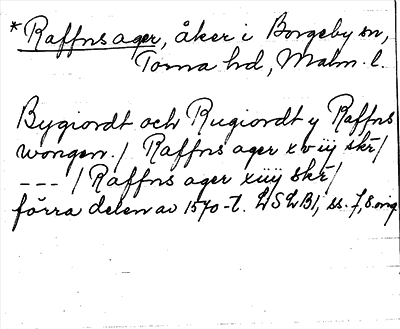 * Raffns ager, åker i Borgeby sn,
Torna hd, Malm. l.
Bygiordt och Rugiordt y Raffns
wongen. / Raffns ager xviij skr̄ /
--- / Raffns ager xiiij skr̄ /
förra delen av 1570-t. LSLB1, ss. 7, 8 orig